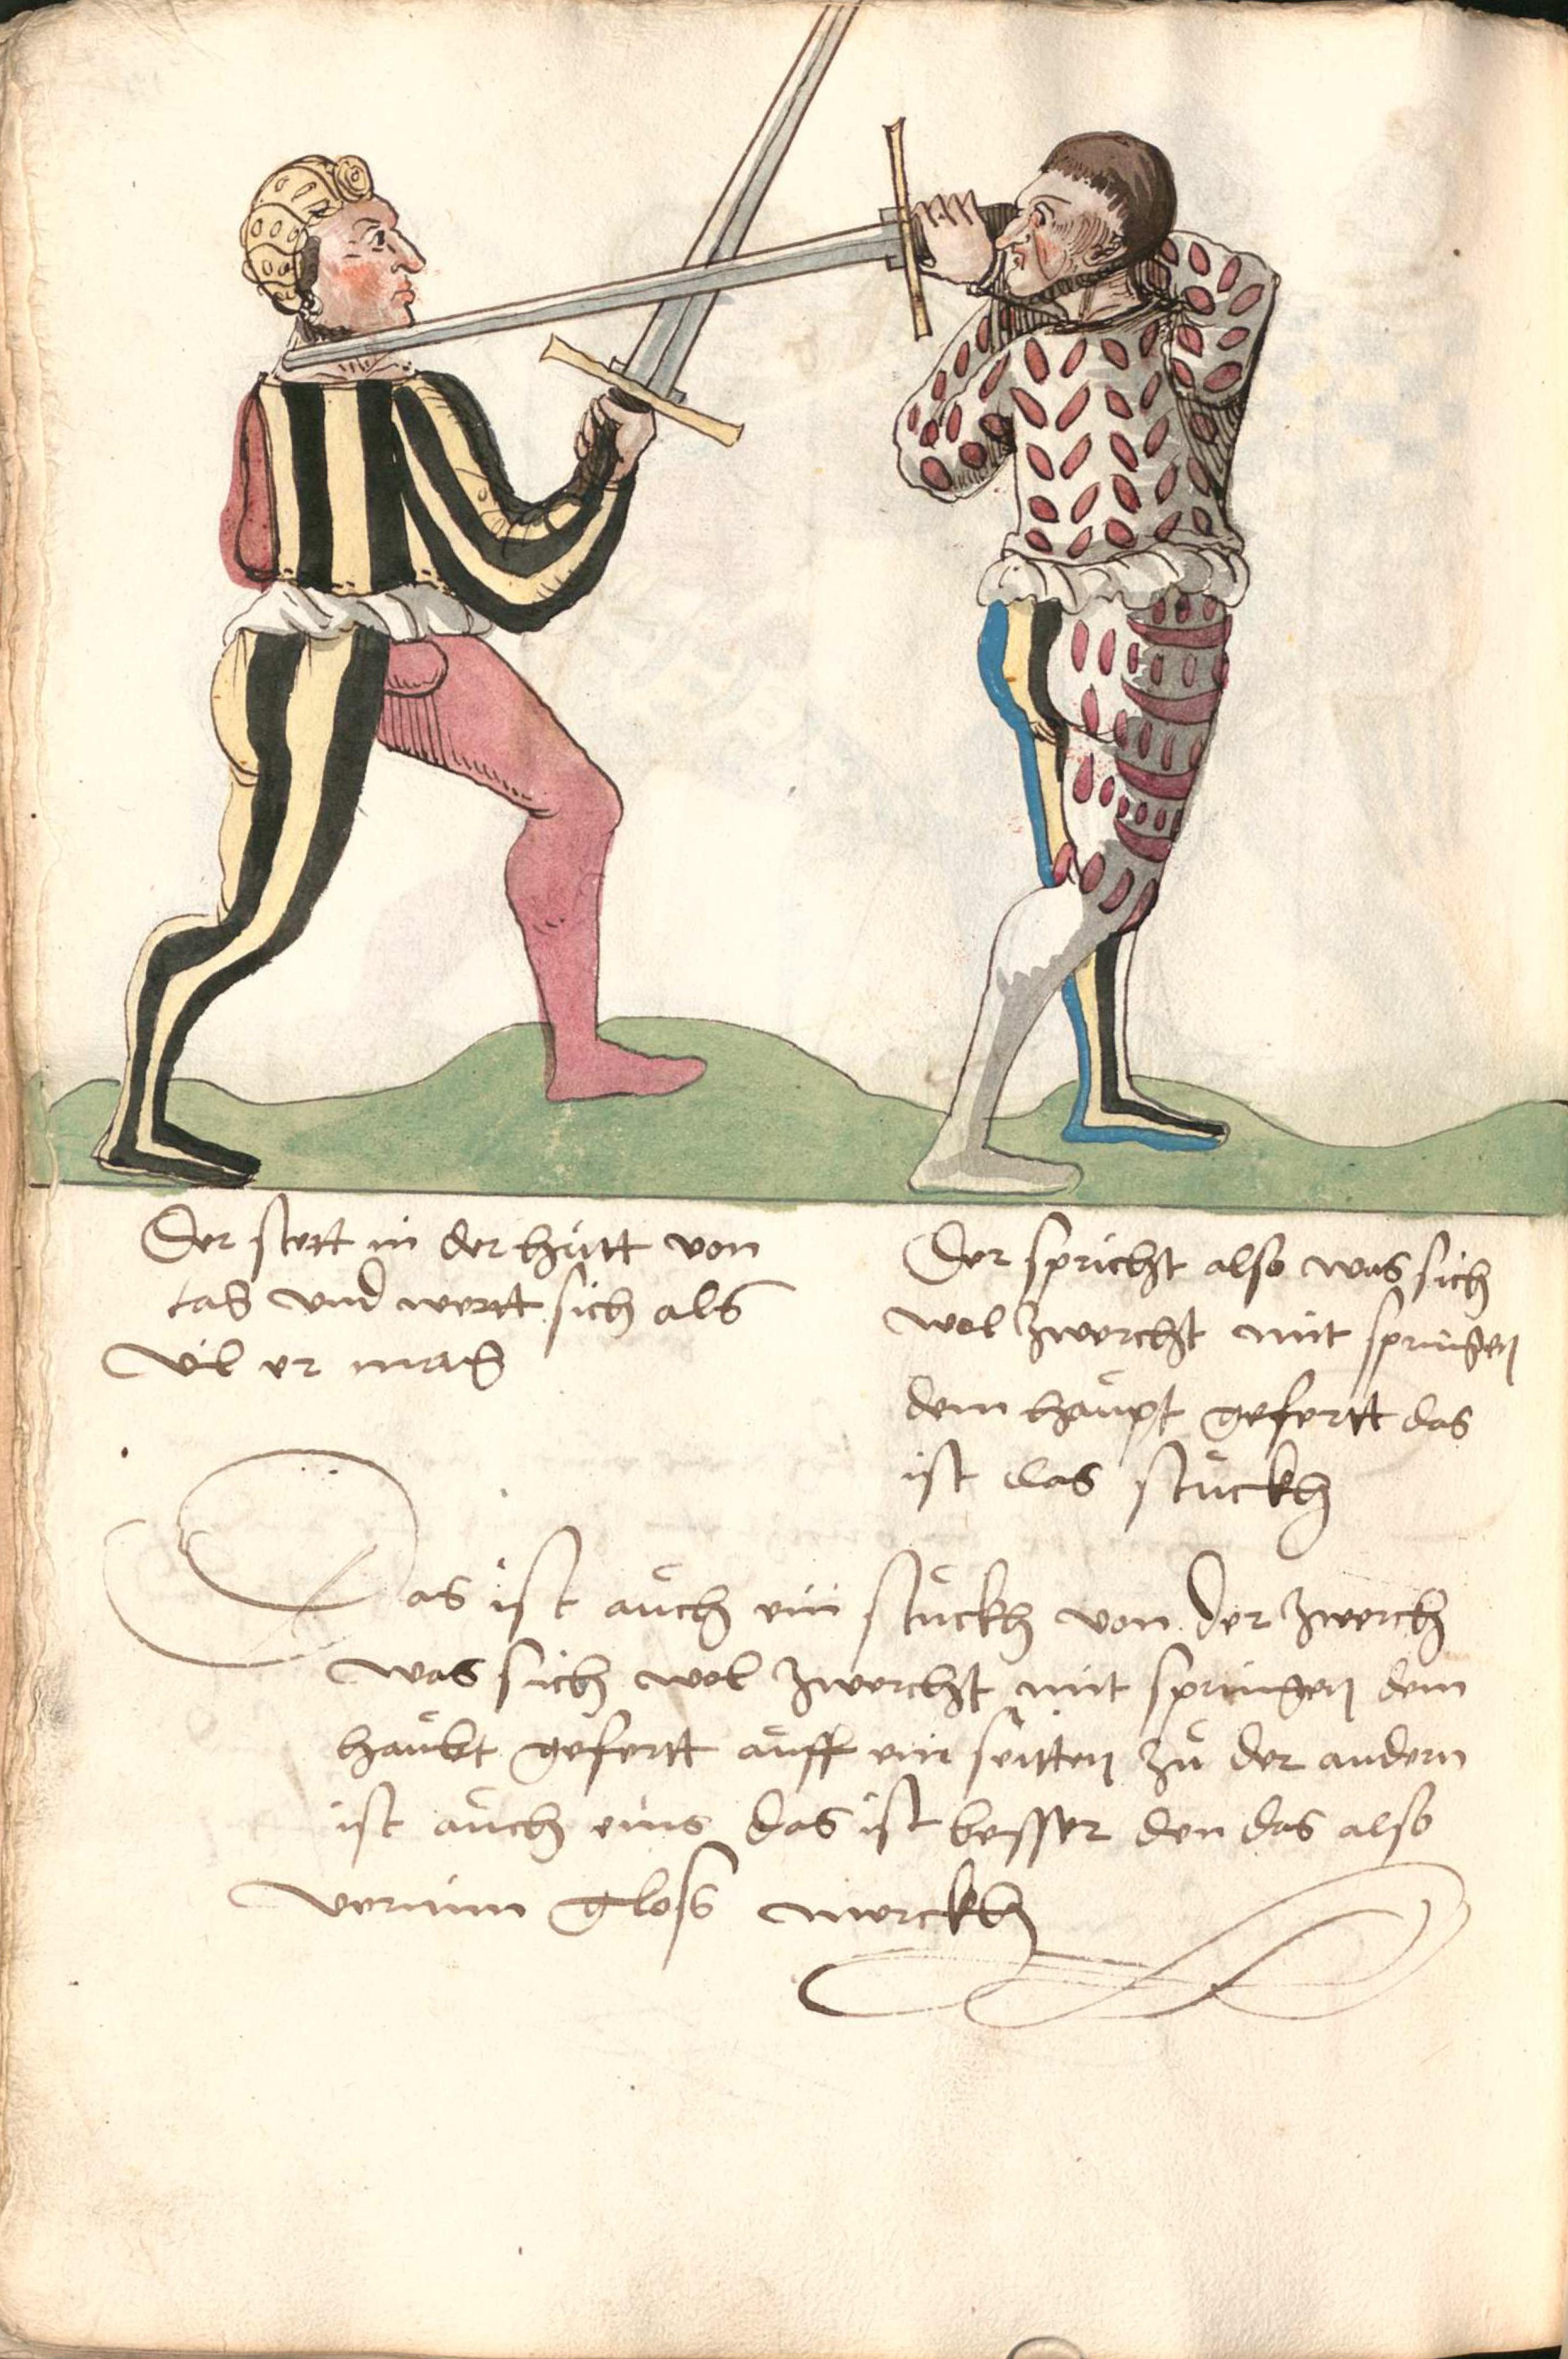 Der stett in der hůtt von
tag vnd wertt sich als
vil er mag
Der spricht also was sich
wol zwercht mit springen
dem haůpt gefertt das
ist das stůckh
Das ist aůch ein stůckh von der zwerch
was sich wol zwercht mit springen dem
haůbt gefertt aůff ein seitten zů der andern
ist aůch eins das ist besser den das also
vernim gloss merckh